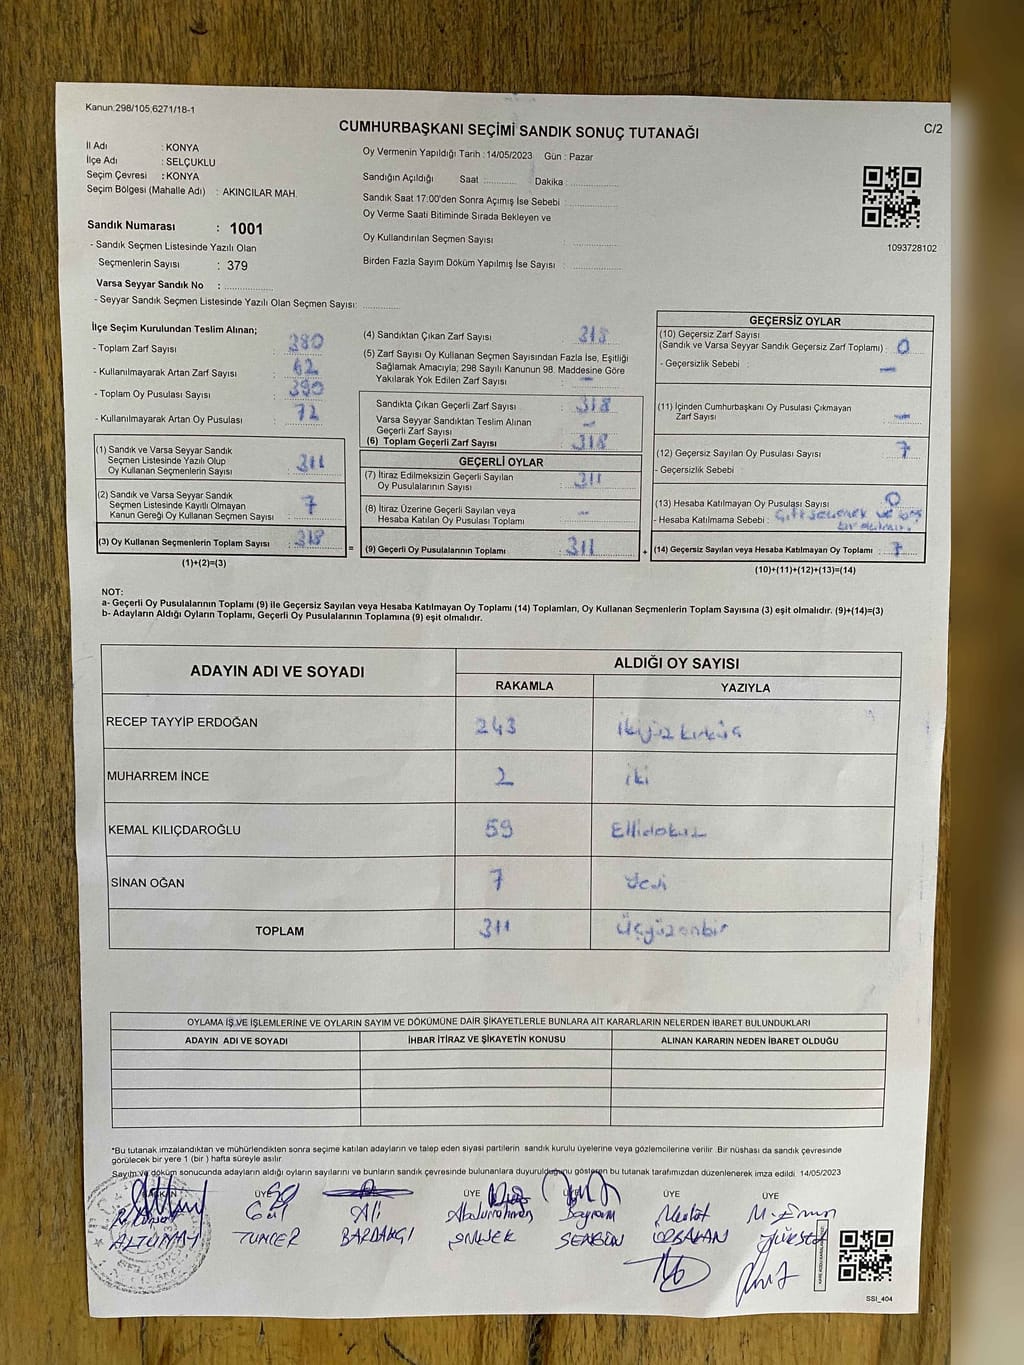 Kanun.298/105,6271/18-1
CUMHURBAŞKANI SEÇİMİ SANDIK SONUÇ TUTANAĞI
C/2
İl Adı : KONYA
İlçe Adı : SELÇUKLU
Seçim Çevresi : KONYA
Seçim Bölgesi (Mahalle Adı) : AKINCILAR MAH.
Sandık Numarası : 1001
- Sandık Seçmen Listesinde Yazılı Olan
Seçmenlerin Sayısı : 379
Varsa Seyyar Sandık No :
- Seyyar Sandık Seçmen Listesinde Yazılı Olan Seçmen Sayısı:
Oy Vermenin Yapıldığı Tarih : 14/05/2023 Gün : Pazar
Sandığın Açıldığı Saat Dakika :
Sandık Saat 17:00'den Sonra Açımış İse Sebebi :
Oy Verme Saati Bitiminde Sırada Bekleyen ve
Oy Kullandırılan Seçmen Sayısı :
Birden Fazla Sayım Döküm Yapılmış İse Sayısı :
1093728102
İlçe Seçim Kurulundan Teslim Alınan;
- Toplam Zarf Sayısı : 380
- Kullanılmayarak Artan Zarf Sayısı : 62
- Toplam Oy Pusulası Sayısı : 390
- Kullanılmayarak Artan Oy Pusulası : 72
(1) Sandık ve Varsa Seyyar Sandık
Seçmen Listesinde Yazılı Olup
Oy Kullanan Seçmenlerin Sayısı : 311
(2) Sandık ve Varsa Seyyar Sandık
Seçmen Listesinde Kayıtlı Olmayan
Kanun Gereği Oy Kullanan Seçmen Sayısı : 7
(3) Oy Kullanan Seçmenlerin Toplam Sayısı : 318
(1)+(2)=(3)
(4) Sandıktan Çıkan Zarf Sayısı : 318
(5) Zarf Sayısı Oy Kullanan Seçmen Sayısından Fazla İse, Eşitliği
Sağlamak Amacıyla; 298 Sayılı Kanunun 98. Maddesine Göre
Yakılarak Yok Edilen Zarf Sayısı : -
Sandıkta Çıkan Geçerli Zarf Sayısı : 318
Varsa Seyyar Sandıktan Teslim Alınan
Geçerli Zarf Sayısı : -
(6) Toplam Geçerli Zarf Sayısı : 318
GEÇERLİ OYLAR
(7) İtiraz Edilmeksizin Geçerli Sayılan
Oy Pusulalarının Sayısı : 311
(8) İtiraz Üzerine Geçerli Sayılan veya
Hesaba Katılan Oy Pusulası Toplamı : -
= (9) Geçerli Oy Pusulalarının Toplamı : 311
GEÇERSİZ OYLAR
(10) Geçersiz Zarf Sayısı
(Sandık ve Varsa Seyyar Sandık Geçersiz Zarf Toplamı) : 0
- Geçersizlik Sebebi : -
(11) İçinden Cumhurbaşkanı Oy Pusulası Çıkmayan
Zarf Sayısı : -
(12) Geçersiz Sayılan Oy Pusulası Sayısı : 7
- Geçersizlik Sebebi :
(13) Hesaba Katılmayan Oy Pusulası Sayısı : 0
- Hesaba Katılmama Sebebi : Çift seçenek ve boş
+ (14) Geçersiz Sayılan veya Hesaba Katılmayan Oy Toplamı : 7
(10)+(11)+(12)+(13)=(14)
NOT:
a- Geçerli Oy Pusulalarının Toplamı (9) ile Geçersiz Sayılan veya Hesaba Katılmayan Oy Toplamı (14) Toplamları, Oy Kullanan Seçmenlerin Toplam Sayısına (3) eşit olmalıdır. (9)+(14)=(3)
b- Adayların Aldığı Oyların Toplamı, Geçerli Oy Pusulalarının Toplamına (9) eşit olmalıdır.
ADAYIN ADI VE SOYADI
ALDIĞI OY SAYISI
RAKAMLA YAZIYLA
RECEP TAYYİP ERDOĞAN 243 ikiyüz kırküç
MUHARREM İNCE 2 iki
KEMAL KILIÇDAROĞLU 59 Ellidokuz
SİNAN OĞAN 7 Yedi
TOPLAM 311 Üçyüzonbir
OYLAMA İŞ VE İŞLEMLERİNE VE OYLARIN SAYIM VE DÖKÜMÜNE DAİR ŞİKAYETLERLE BUNLARA AİT KARARLARIN NELERDEN İBARET BULUNDUKLARI
ADAYIN ADI VE SOYADI İHBAR İTİRAZ VE ŞİKAYETİN KONUSU ALINAN KARARIN NEDEN İBARET OLDUĞU
*Bu tutanak imzalandıktan ve mühürlendikten sonra seçime katılan adayların ve talep eden siyasi partilerin sandık kurulu üyelerine veya gözlemcilerine verilir. Bir nüshası da sandık çevresinde
görülecek bir yere 1 (bir ) hafta süreyle asılır
Sayım ve döküm sonucunda adayların aldığı oyların sayılarını ve bunların sandık çevresinde bulunanlara duyurulduğunu gösteren bu tutanak tarafımızdan düzenlenerek imza edildi. 14/05/2023
BAŞKAN ÜYE ÜYE ÜYE ÜYE ÜYE
Gül Ali Abdurrahman Bayram Mevlüt
ALTUNAY TUNCER BARDAKÇI ŞİMŞEK ŞENGÜN ORBAKAN
SSI_404